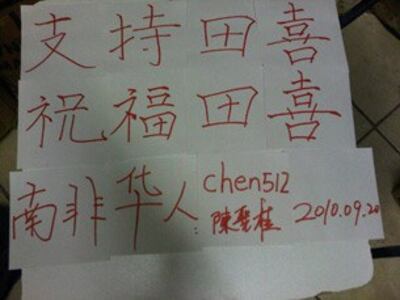 支持田喜
祝福田喜
南非华人:chen512
陳聖桂 2010.09.20